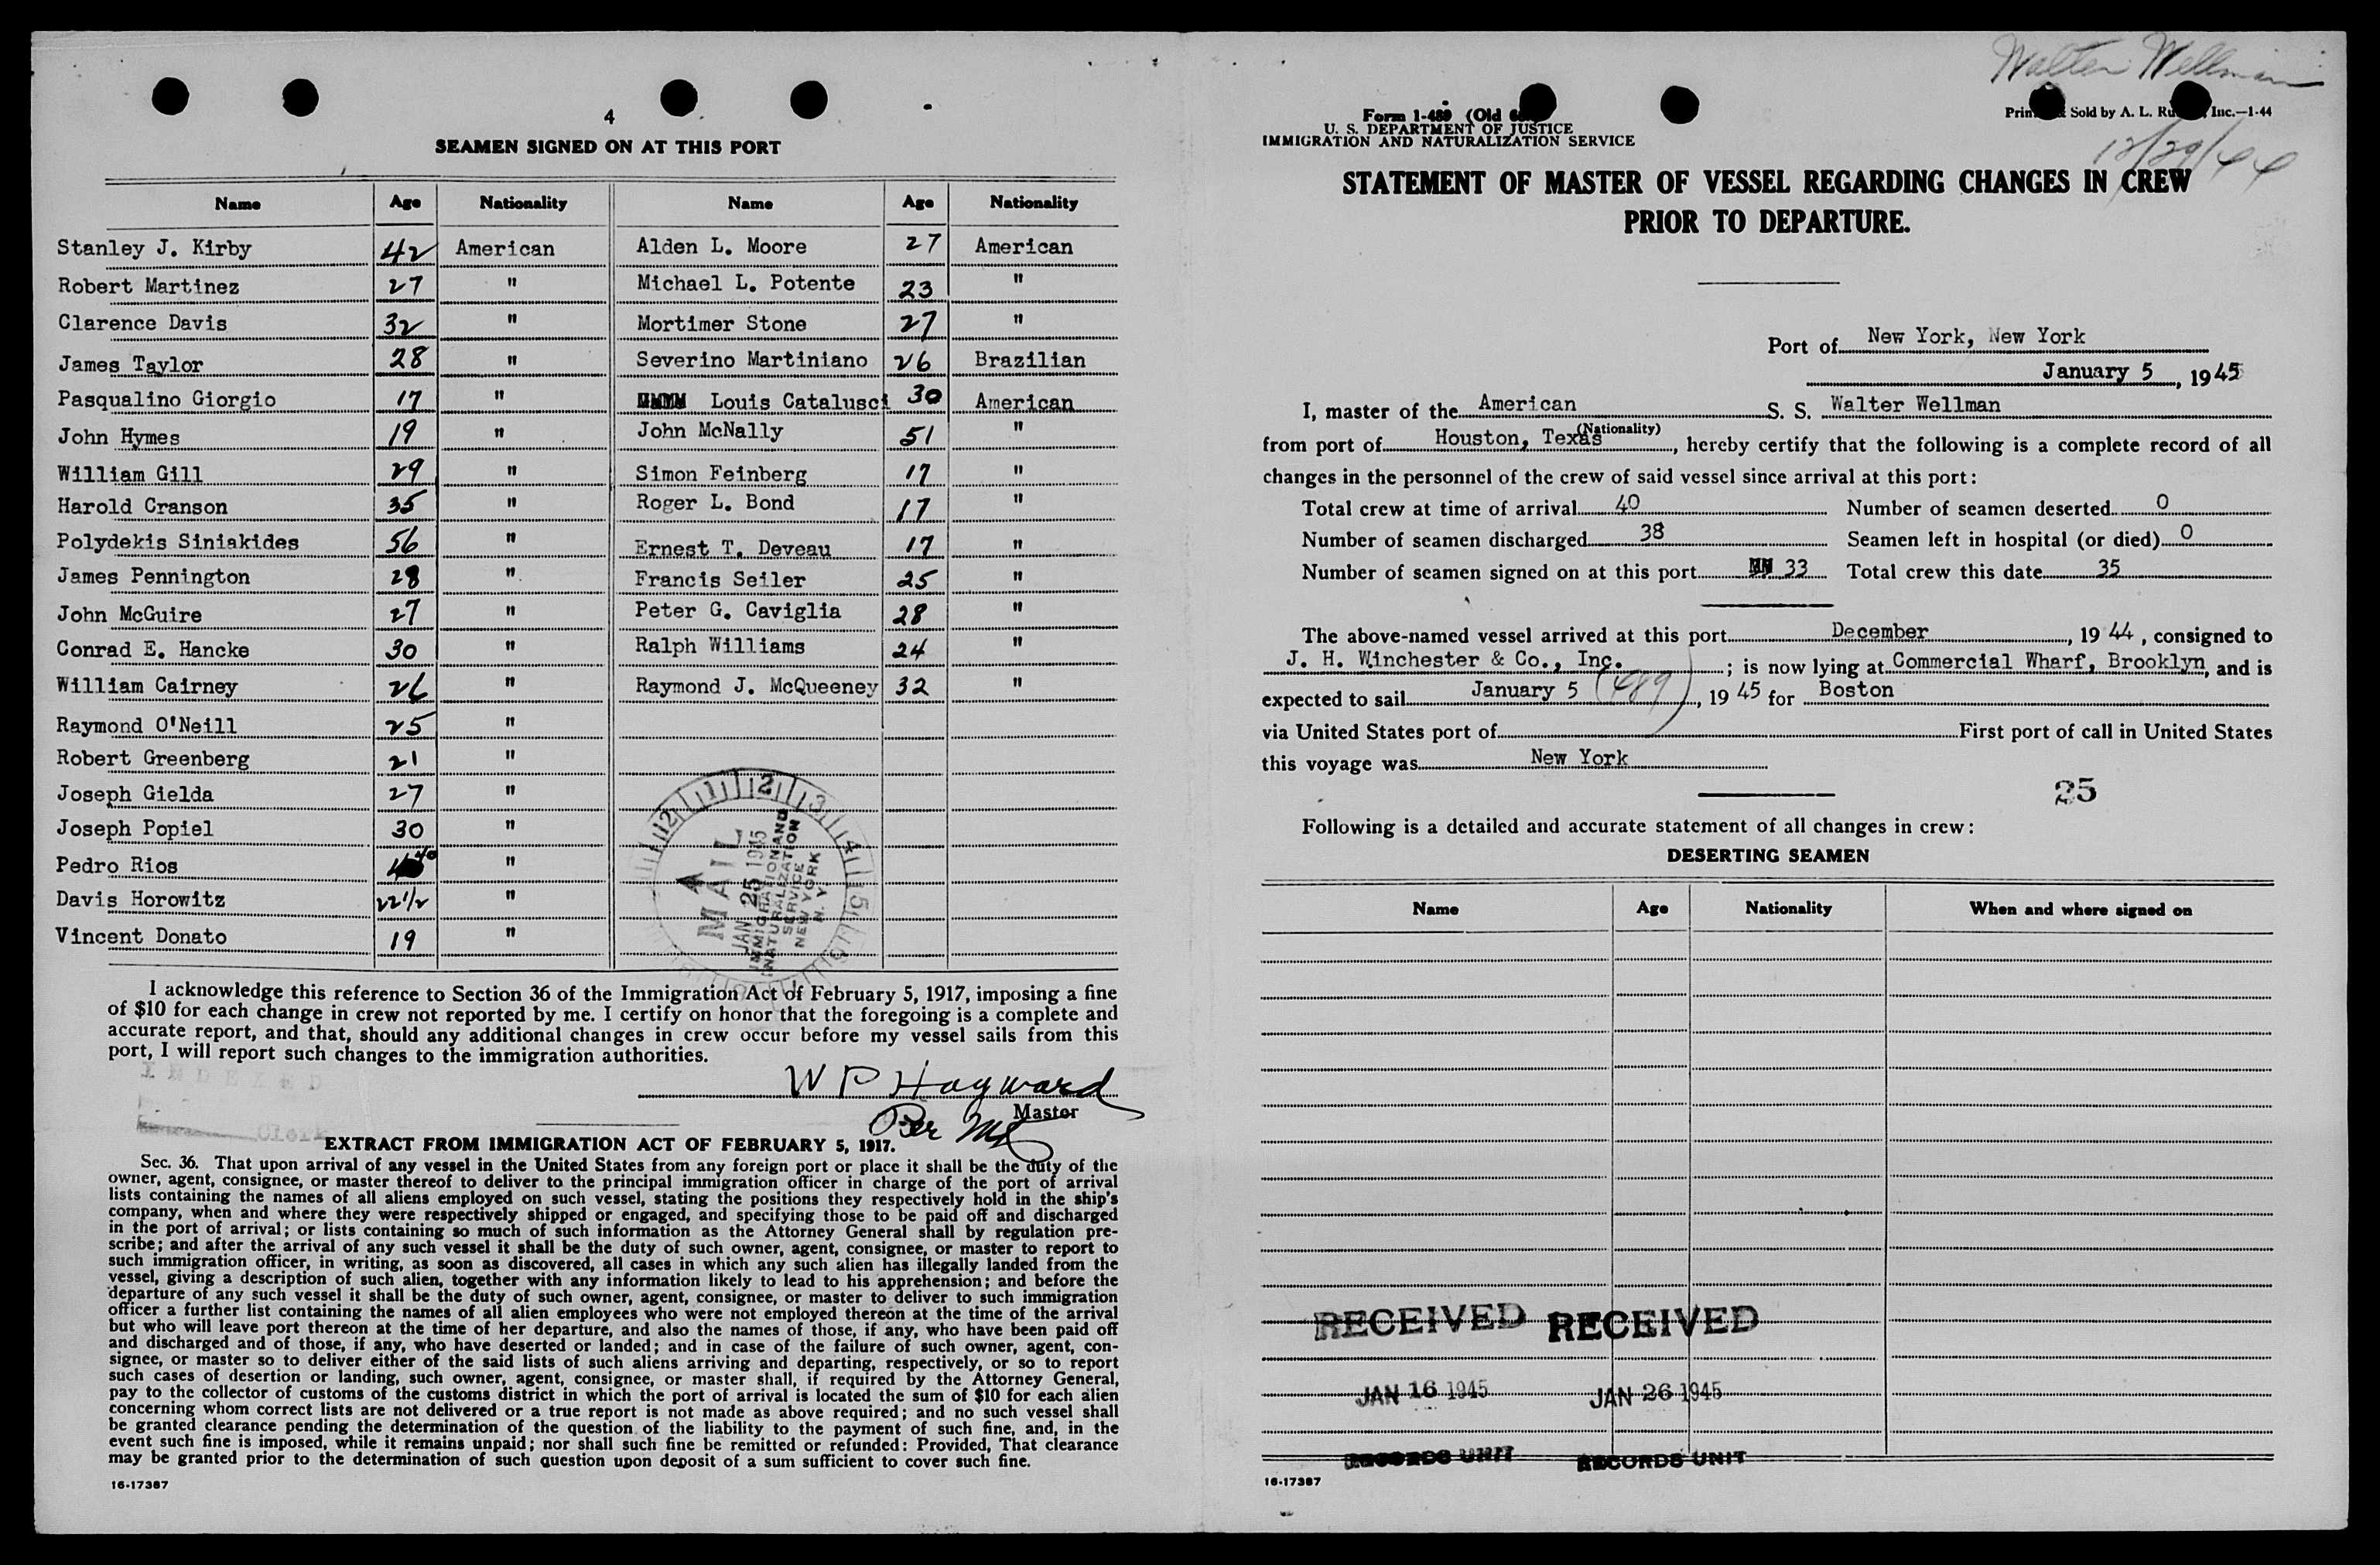 4
SEAMEN SIGNED ON AT THIS PORT
Name Age Nationality Name Age Nationality
Stanley J. Kirby 42 American Alden L. Moore 27 American
Robert Martinez 27 " Michael L. Potente 23 "
Clarence Davis 32 " Mortimer Stone 27 "
James Taylor 28 " Severino Martiniano 26 Brazilian
Pasqualino Giorgio 17 " Louis Catalusci 30 American
John Hymes 19 " John McNally 51 "
William Gill 29 " Simon Feinberg 17 "
Harold Cranson 35 " Roger L. Bond 17 "
Polydekis Siniakides 56 " Ernest T. Deveau 17 "
James Pennington 28 " Francis Seiler 25 "
John McGuire 27 " Peter G. Caviglia 28 "
Conrad E. Hancke 30 " Ralph Williams 24 "
William Cairney 26 " Raymond J. McQueeney 32 "
Raymond O'Neill 25 "
Robert Greenberg 21 "
Joseph Gielda 27 "
Joseph Popiel 30 "
Pedro Rios 40 "
Davis Horowitz 22 1/2 "
Vincent Donato 19 "
12 1 2 3 4 5
MAIL
JAN 25 1945
IMMIGRATION AND
NATURALIZATION
SERVICE
NEW YORK
N. Y.
I acknowledge this reference to Section 36 of the Immigration Act of February 5, 1917, imposing a fine
of $10 for each change in crew not reported by me. I certify on honor that the foregoing is a complete and
accurate report, and that, should any additional changes in crew occur before my vessel sails from this
port, I will report such changes to the immigration authorities.
INDEXED
W P Hayward
Master
Per
Clerk
EXTRACT FROM IMMIGRATION ACT OF FEBRUARY 5, 1917.
Sec. 36. That upon arrival of any vessel in the United States from any foreign port or place it shall be the duty of the
owner, agent, consignee, or master thereof to deliver to the principal immigration officer in charge of the port of arrival
lists containing the names of all aliens employed on such vessel, stating the positions they respectively hold in the ship's
company, when and where they were respectively shipped or engaged, and specifying those to be paid off and discharged
in the port of arrival; or lists containing so much of such information as the Attorney General shall by regulation pre-
scribe; and after the arrival of any such vessel it shall be the duty of such owner, agent, consignee, or master to report to
such immigration officer, in writing, as soon as discovered, all cases in which any such alien has illegally landed from the
vessel, giving a description of such alien, together with any information likely to lead to his apprehension; and before the
departure of any such vessel it shall be the duty of such owner, agent, consignee, or master to deliver to such immigration
officer a further list containing the names of all alien employees who were not employed thereon at the time of the arrival
but who will leave port thereon at the time of her departure, and also the names of those, if any, who have been paid off
and discharged and of those, if any, who have deserted or landed; and in case of the failure of such owner, agent, con-
signee, or master so to deliver either of the said lists of such aliens arriving and departing, respectively, or so to report
such cases of desertion or landing, such owner, agent, consignee, or master shall, if required by the Attorney General,
pay to the collector of customs of the customs district in which the port of arrival is located the sum of $10 for each alien
concerning whom correct lists are not delivered or a true report is not made as above required; and no such vessel shall
be granted clearance pending the determination of the question of the liability to the payment of such fine, and, in the
event such fine is imposed, while it remains unpaid; nor shall such fine be remitted or refunded: Provided, That clearance
may be granted prior to the determination of such question upon deposit of a sum sufficient to cover such fine.
16-17387
Walter Wellman
Form I-489 (Old
U. S. DEPARTMENT OF JUSTICE
IMMIGRATION AND NATURALIZATION SERVICE
Sold by A. L. Inc.—1-44
12/29/44
STATEMENT OF MASTER OF VESSEL REGARDING CHANGES IN CREW
PRIOR TO DEPARTURE.
Port of New York, New York
January 5, 1945
I, master of the American S. S. Walter Wellman
(Nationality)
from port of Houston, Texas, hereby certify that the following is a complete record of all
changes in the personnel of the crew of said vessel since arrival at this port:
Total crew at time of arrival 40 Number of seamen deserted 0
Number of seamen discharged 38 Seamen left in hospital (or died) 0
Number of seamen signed on at this port 33 Total crew this date 35
The above-named vessel arrived at this port December, 1944, consigned to
J. H. Winchester & Co., Inc.; is now lying at Commercial Wharf, Brooklyn, and is
expected to sail January 5 (489), 1945 for Boston
via United States port of First port of call in United States
this voyage was New York
25
Following is a detailed and accurate statement of all changes in crew:
DESERTING SEAMEN
Name Age Nationality When and where signed on
RECEIVED RECEIVED
JAN 16 1945 JAN 26 1945
RECORDS UNIT RECORDS UNIT
16-17387